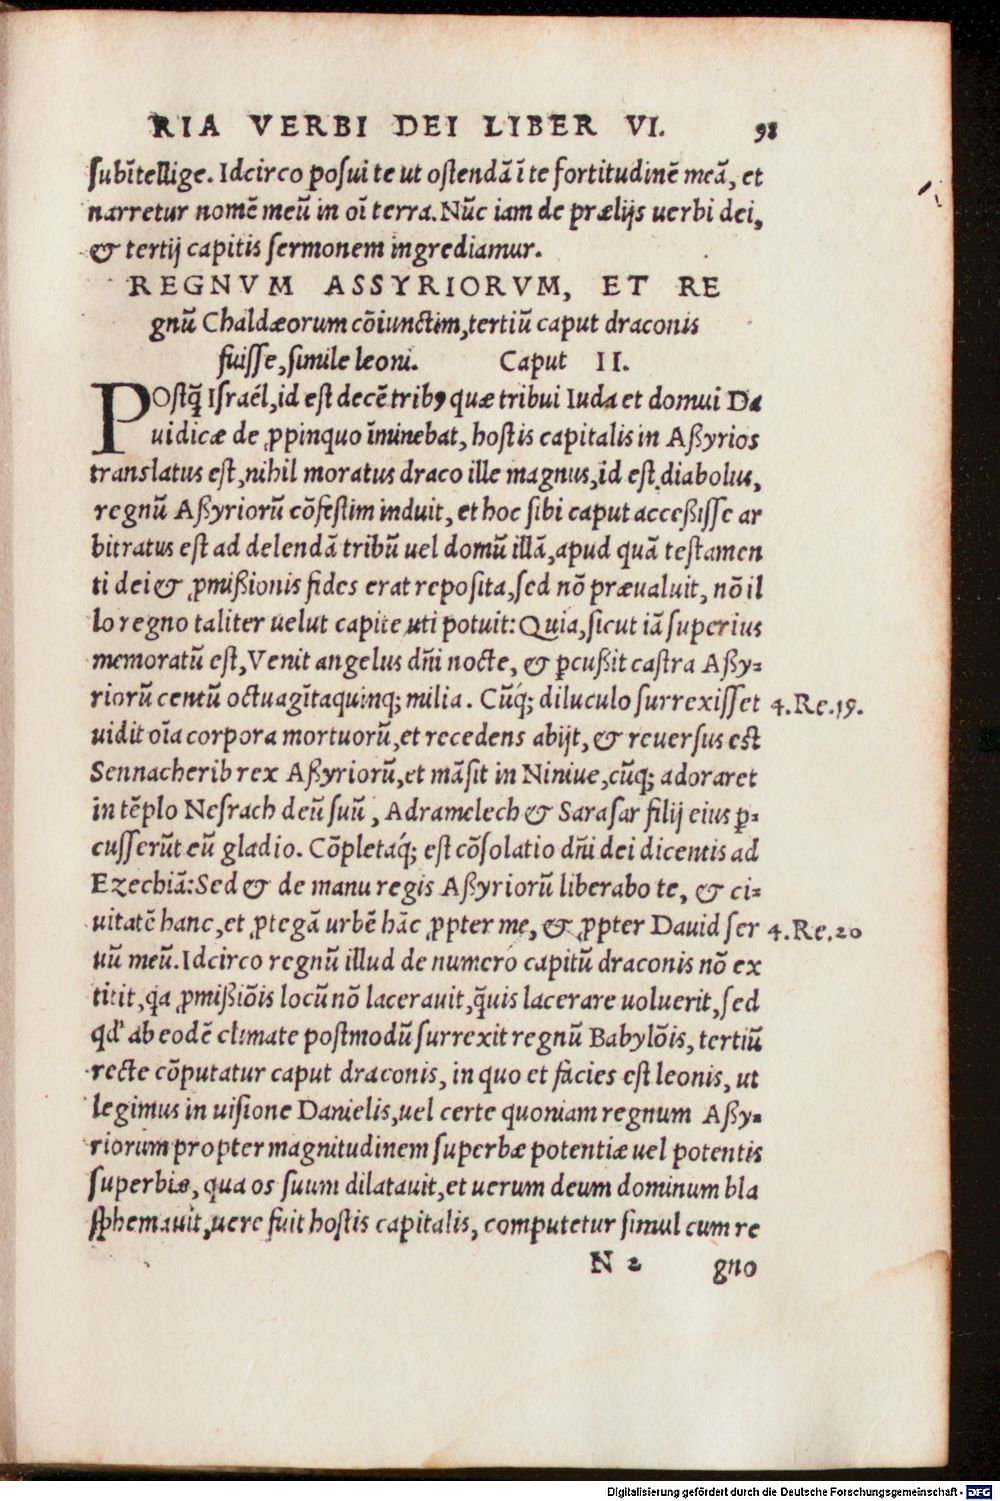 RIA VERBI DEI LIBER VI. 98
subītellige. Idcirco posui te ut ostendā ī te fortitudinē meā, et
narretur nomē meū in oī terra. Nūc iam de prælijs uerbi dei,
& tertij capitis sermonem ingrediamur.
REGNVM ASSYRIORVM, ET RE
gnū Chaldæorum cōiunctim, tertiū caput draconis
fuisse, simile leoni. Caput II.
POstq̄ Israël, id est decē tribꝰ quæ tribui Iuda et domui Da
uidicæ de ꝓpinquo īminebat, hostis capitalis in Aßyrios
translatus est, nihil moratus draco ille magnus, id est diabolus,
regnū Aßyriorū cōfestim induit, et hoc sibi caput acceßisse ar
bitratus est ad delendā tribū uel domū illā, apud quā testamen
ti dei & ꝓmißionis fides erat reposita, sed nō præualuit, nō il
lo regno taliter uelut capite uti potuit: Quia, sicut iā superius
memoratū est, Venit angelus dn̄i nocte, & ꝑcußit castra Aßy-
riorū centū octuagītaquinq; milia. Cūq́; diluculo surrexisset
4. Re. 19.
uidit oīa corpora mortuorū, et recedens abijt, & reuersus est
Sennacherib rex Aßyriorū, et māsit in Niniue, cūq; adoraret
in tēplo Nesrach deū suū, Adramelech & Sarasar filij eius ꝑ-
cusserūt eū gladio. Cōpletaq́; est cōsolatio dn̄i dei dicentis ad
Ezechiā: Sed & de manu regis Aßyriorū liberabo te, & ci-
uitatē hanc, et ꝓtegā urbē hāc ꝓpter me, & ꝓpter Dauid ser
4. Re. 20
uū meū. Idcirco regnū illud de numero capitū draconis nō ex
titit, q̇a ꝓmißiōis locū nō lacerauit, q̄uis lacerare uoluerit, sed
qđ ab eodē climate postmodū surrexit regnū Babylōis, tertiū
recte cōputatur caput draconis, in quo et facies est leonis, ut
legimus in uisione Danielis, uel certe quoniam regnum Aßy-
riorum propter magnitudinem superbæ potentiæ uel potentis
superbiæ, qua os suum dilatauit, et uerum deum dominum bla
sphemauit, uere fuit hostis capitalis, computetur simul cum re
N 2 gno
Digitalisierung gefördert durch die Deutsche Forschungsgemeinschaft - DFG